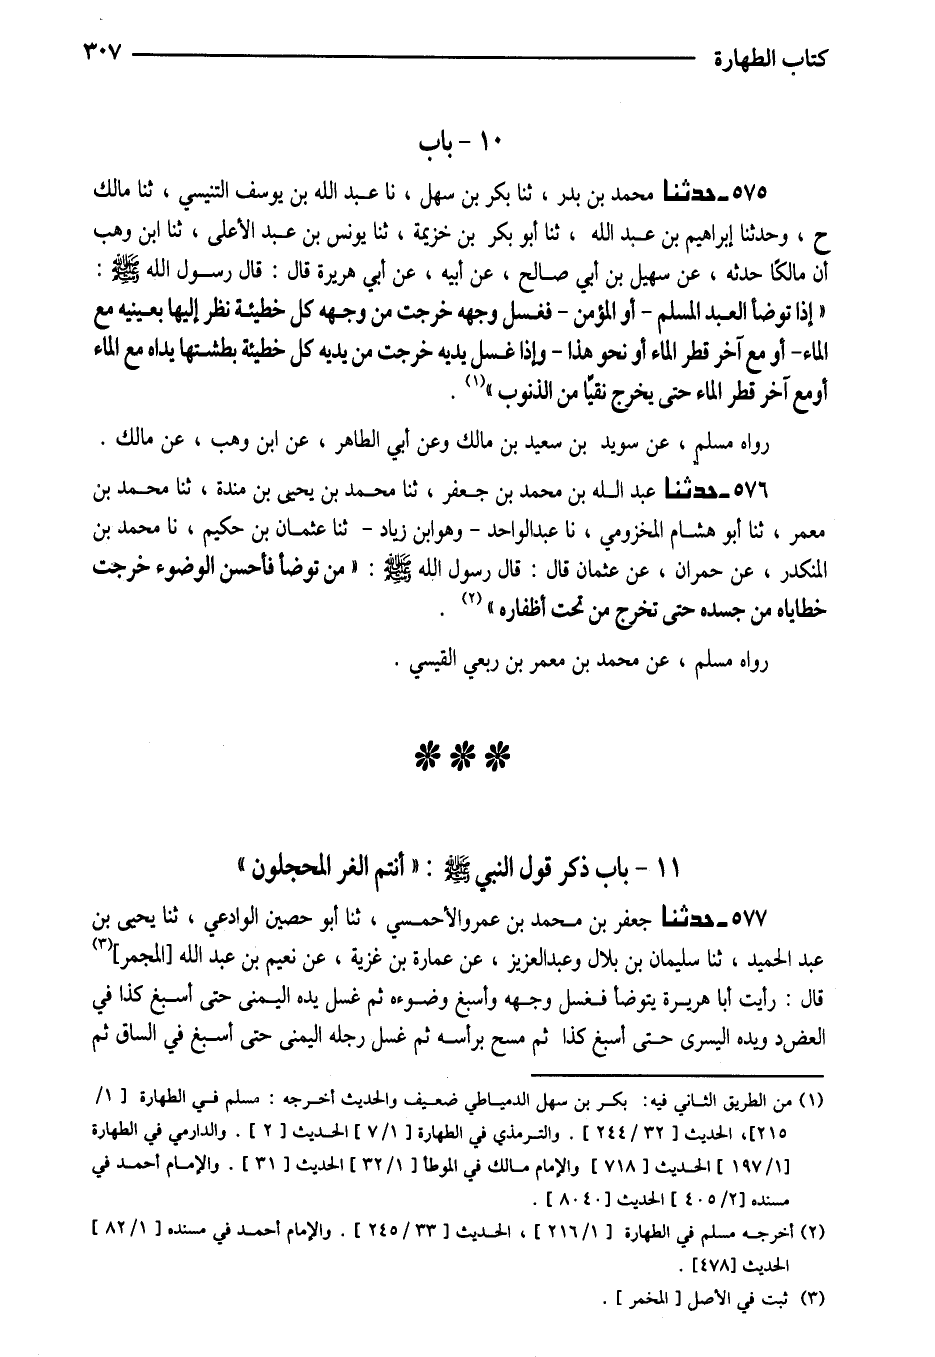 كتاب الطهارة ٣٠٧
١٠ - باب
٥٧٥ـ حدثنا محمد بن بدر ، ثنا بكر بن سهل ، نا عبد الله بن يوسف التنيسي ، ثنا مالك
ح ، وحدثنا إبراهيم بن عبد الله ، ثنا أبو بكر بن خزيمة ، ثنا يونس بن عبد الأعلى ، ثنا ابن وهب
أن مالكًا حدثه ، عن سهيل بن أبي صالح ، عن أبيه ، عن أبي هريرة قال : قال رسول الله ﷺ :
« إذا توضأ العبد المسلم - أو المؤمن - فغسل وجهه خرجت من وجهه كل خطيئة نظر إليها بعينيه مع
الماء- أو مع آخر قطر الماء أو نحو هذا - وإذا غسل يديه خرجت من يديه كل خطيئة بطشتها يداه مع الماء
أومع آخر قطر الماء حتى يخرج نقيًا من الذنوب »(١) .
رواه مسلم ، عن سويد بن سعيد بن مالك وعن أبي الطاهر ، عن ابن وهب ، عن مالك .
٥٧٦ـ حدثنا عبد الله بن محمد بن جعفر ، ثنا محمد بن يحيى بن مندة ، ثنا محمد بن
معمر ، ثنا أبو هشام المخزومي ، نا عبدالواحد - وهوابن زياد - ثنا عثمان بن حكيم ، نا محمد بن
المنكدر ، عن حمران ، عن عثمان قال : قال رسول الله ﷺ : « من توضأ فأحسن الوضوء خرجت
خطاياه من جسده حتى تخرج من تحت أظفاره »(٢) .
رواه مسلم ، عن محمد بن معمر بن ربعي القيسي .
١١ - باب ذكر قول النبي ﷺ : « أنتم الغر المحجلون »
٥٧٧ـ حدثنا جعفر بن محمد بن عمروالأحمسي ، ثنا أبو حصين الوادعي ، ثنا يحيى بن
عبد الحميد ، ثنا سليمان بن بلال وعبدالعزيز ، عن عمارة بن غزية ، عن نعيم بن عبد الله [المجمر](٣)
قال : رأيت أبا هريرة يتوضأ فغسل وجهه وأسبغ وضوءه ثم غسل يده اليمنى حتى أسبغ كذا في
العضد ويده اليسرى حتى أسبغ كذا ثم مسح برأسه ثم غسل رجله اليمنى حتى أسبغ في الساق ثم
(١) من الطريق الثاني فيه: بكر بن سهل الدمياطي ضعيف والحديث أخرجه : مسلم في الطهارة [ ١/
٢١٥]، الحديث [ ٣٢/ ٢٤٤ ] . والترمذي في الطهارة [ ١/ ٧ ] الحديث [ ٢ ] . والدارمي في الطهارة
[ ١/ ١٩٧ ] الحديث [ ٧١٨ ] والإمام مالك في الموطأ [ ١/ ٣٢ ] الحديث [ ٣١ ] . والإمام أحمد في
مسنده [٢/ ٤٠٥ ] الحديث [ ٨٠٤٠ ] .
(٢) أخرجه مسلم في الطهارة [ ١/ ٢١٦ ] ، الحديث [ ٣٣/ ٢٤٥ ] . والإمام أحمد في مسنده [ ١/ ٨٢ ]
الحديث [٤٧٨] .
(٣) ثبت في الأصل [ المخمر ] .